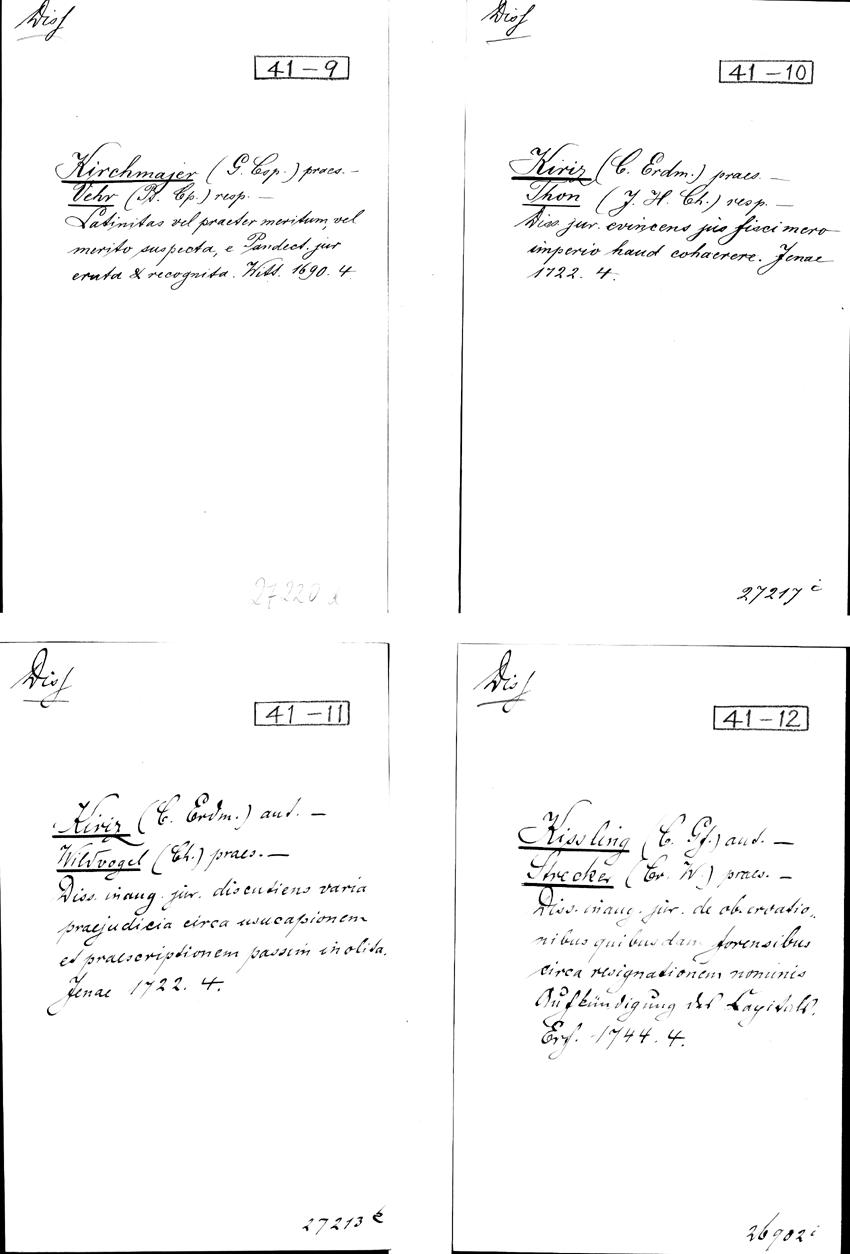 Diss
41-9
Kirchmajer (G. Csp.) praes. —
Vehr (B. Cp.) resp. —
Latinitas vel praeter meritum, vel
merito suspecta, e Pandect. jur
eruta & recognita. Witt. 1690. 4
27220
Diss
41-10
Kiriz (C. Erdm.) praes. —
Thon (J. H. Ch.) resp. —
Diss. jur. evincens jus fisci mero
imperio haud cohaerere. Jenae
1722. 4.
27217 i
Diss
41-11
Kiriz (C. Erdm.) aut. —
Wildvogel (Ch.) praes. —
Diss. inaug. jur. discutiens varia
praejudicia circa usucapionem
et praescriptionem passim inolita.
Jenae 1722. 4.
27213 k
Diss
41-12
Kissling (C. Gf.) aut. —
Strecker (Cr. W.) praes. —
Diss. inaug. jur. de observatio-
nibus quibusdam forensibus
circa resignationem nominis
Aufkündigung des Capitals.
Erf. 1744. 4.
26902 i